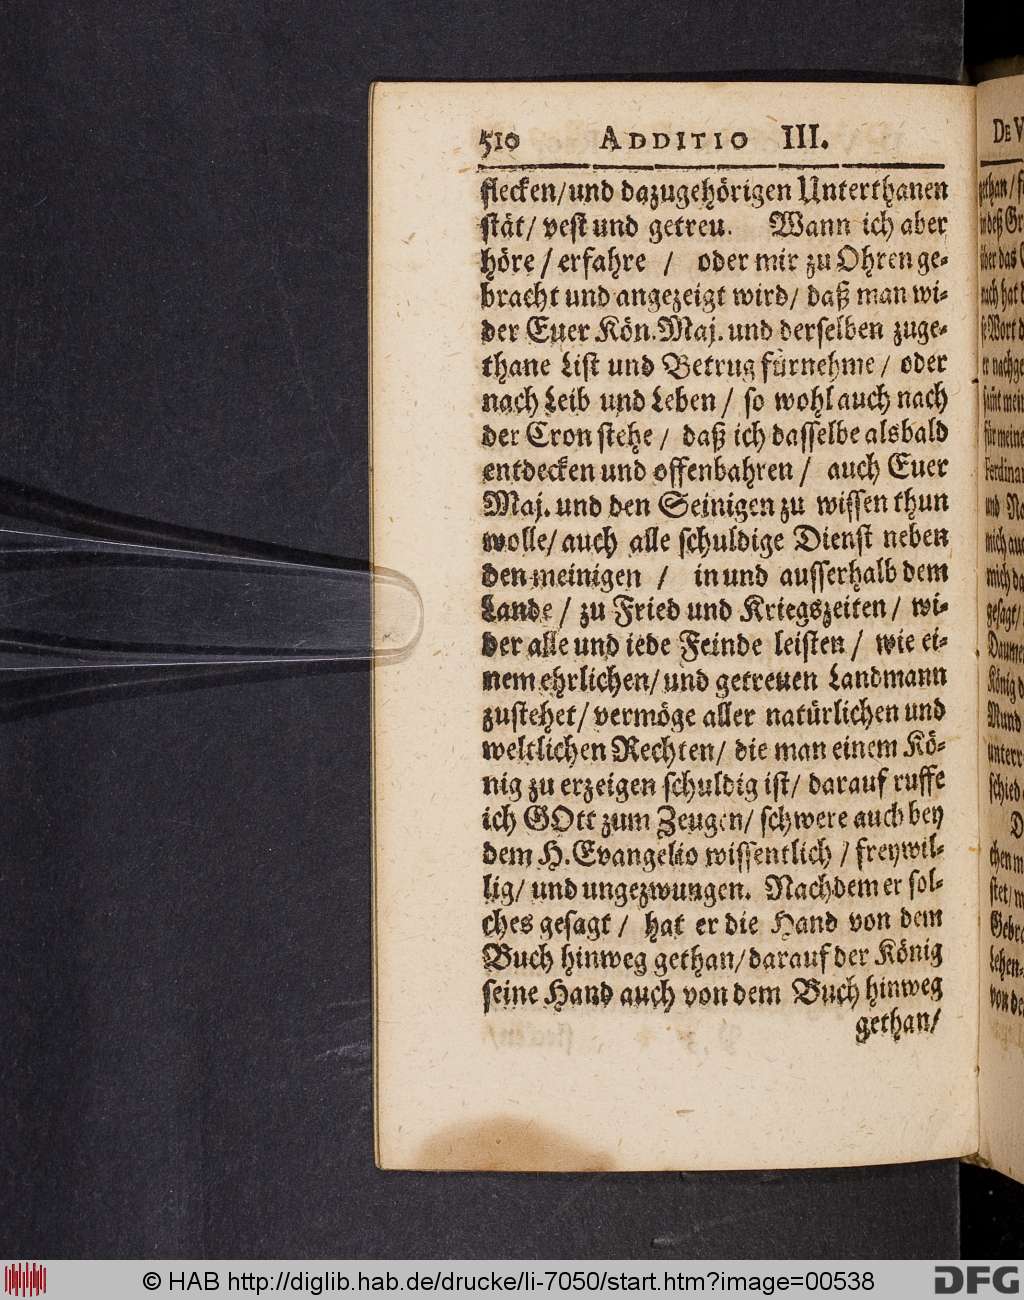 510 ADDITIO III.
flecken/und dazugehörigen Unterthanen
stät/ vest und getreu. Wann ich aber
höre / erfahre / oder mir zu Ohren ge-
bracht und angezeigt wird/ daß man wi-
der Euer Kön. Maj. und derselben zuge-
thane List und Betrug fürnehme / oder
nach Leib und Leben / so wohl auch nach
der Cron stehe / daß ich dasselbe alsbald
entdecken und offenbahren / auch Euer
Maj. und den Seinigen zu wissen thun
wolle/ auch alle schuldige Dienst neben
den meinigen / in und ausserhalb dem
Lande / zu Fried und Kriegszeiten / wi-
der alle und iede Feinde leisten / wie ei-
nem ehrlichen/ und getreuen Landmann
zustehet/ vermöge aller natürlichen und
weltlichen Rechten/ die man einem Kö-
nig zu erzeigen schuldig ist/ darauf ruffe
ich GOtt zum Zeugen/ schwere auch bey
dem H. Evangelio wissentlich / freywil-
lig/ und ungezwungen. Nachdem er sol-
ches gesagt / hat er die Hand von dem
Buch hinweg gethan/ darauf der König
seine Hand auch von dem Buch hinweg
gethan/
DE V
über das
nach hat
er nachge
für meine
Ferdinan
mich auc
mich da
gesagt/
Daume
König d
Mund
unterr
schied
D
chen m
Gebra
Lehen-
von de
© HAB http://diglib.hab.de/drucke/li-7050/start.htm?image=00538
DFG